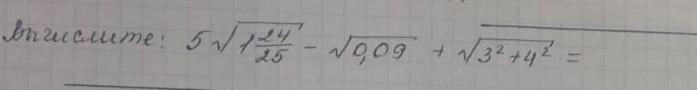 Вычислите: 5√(1 24/25) - √0,09 + √(3² + 4²) =